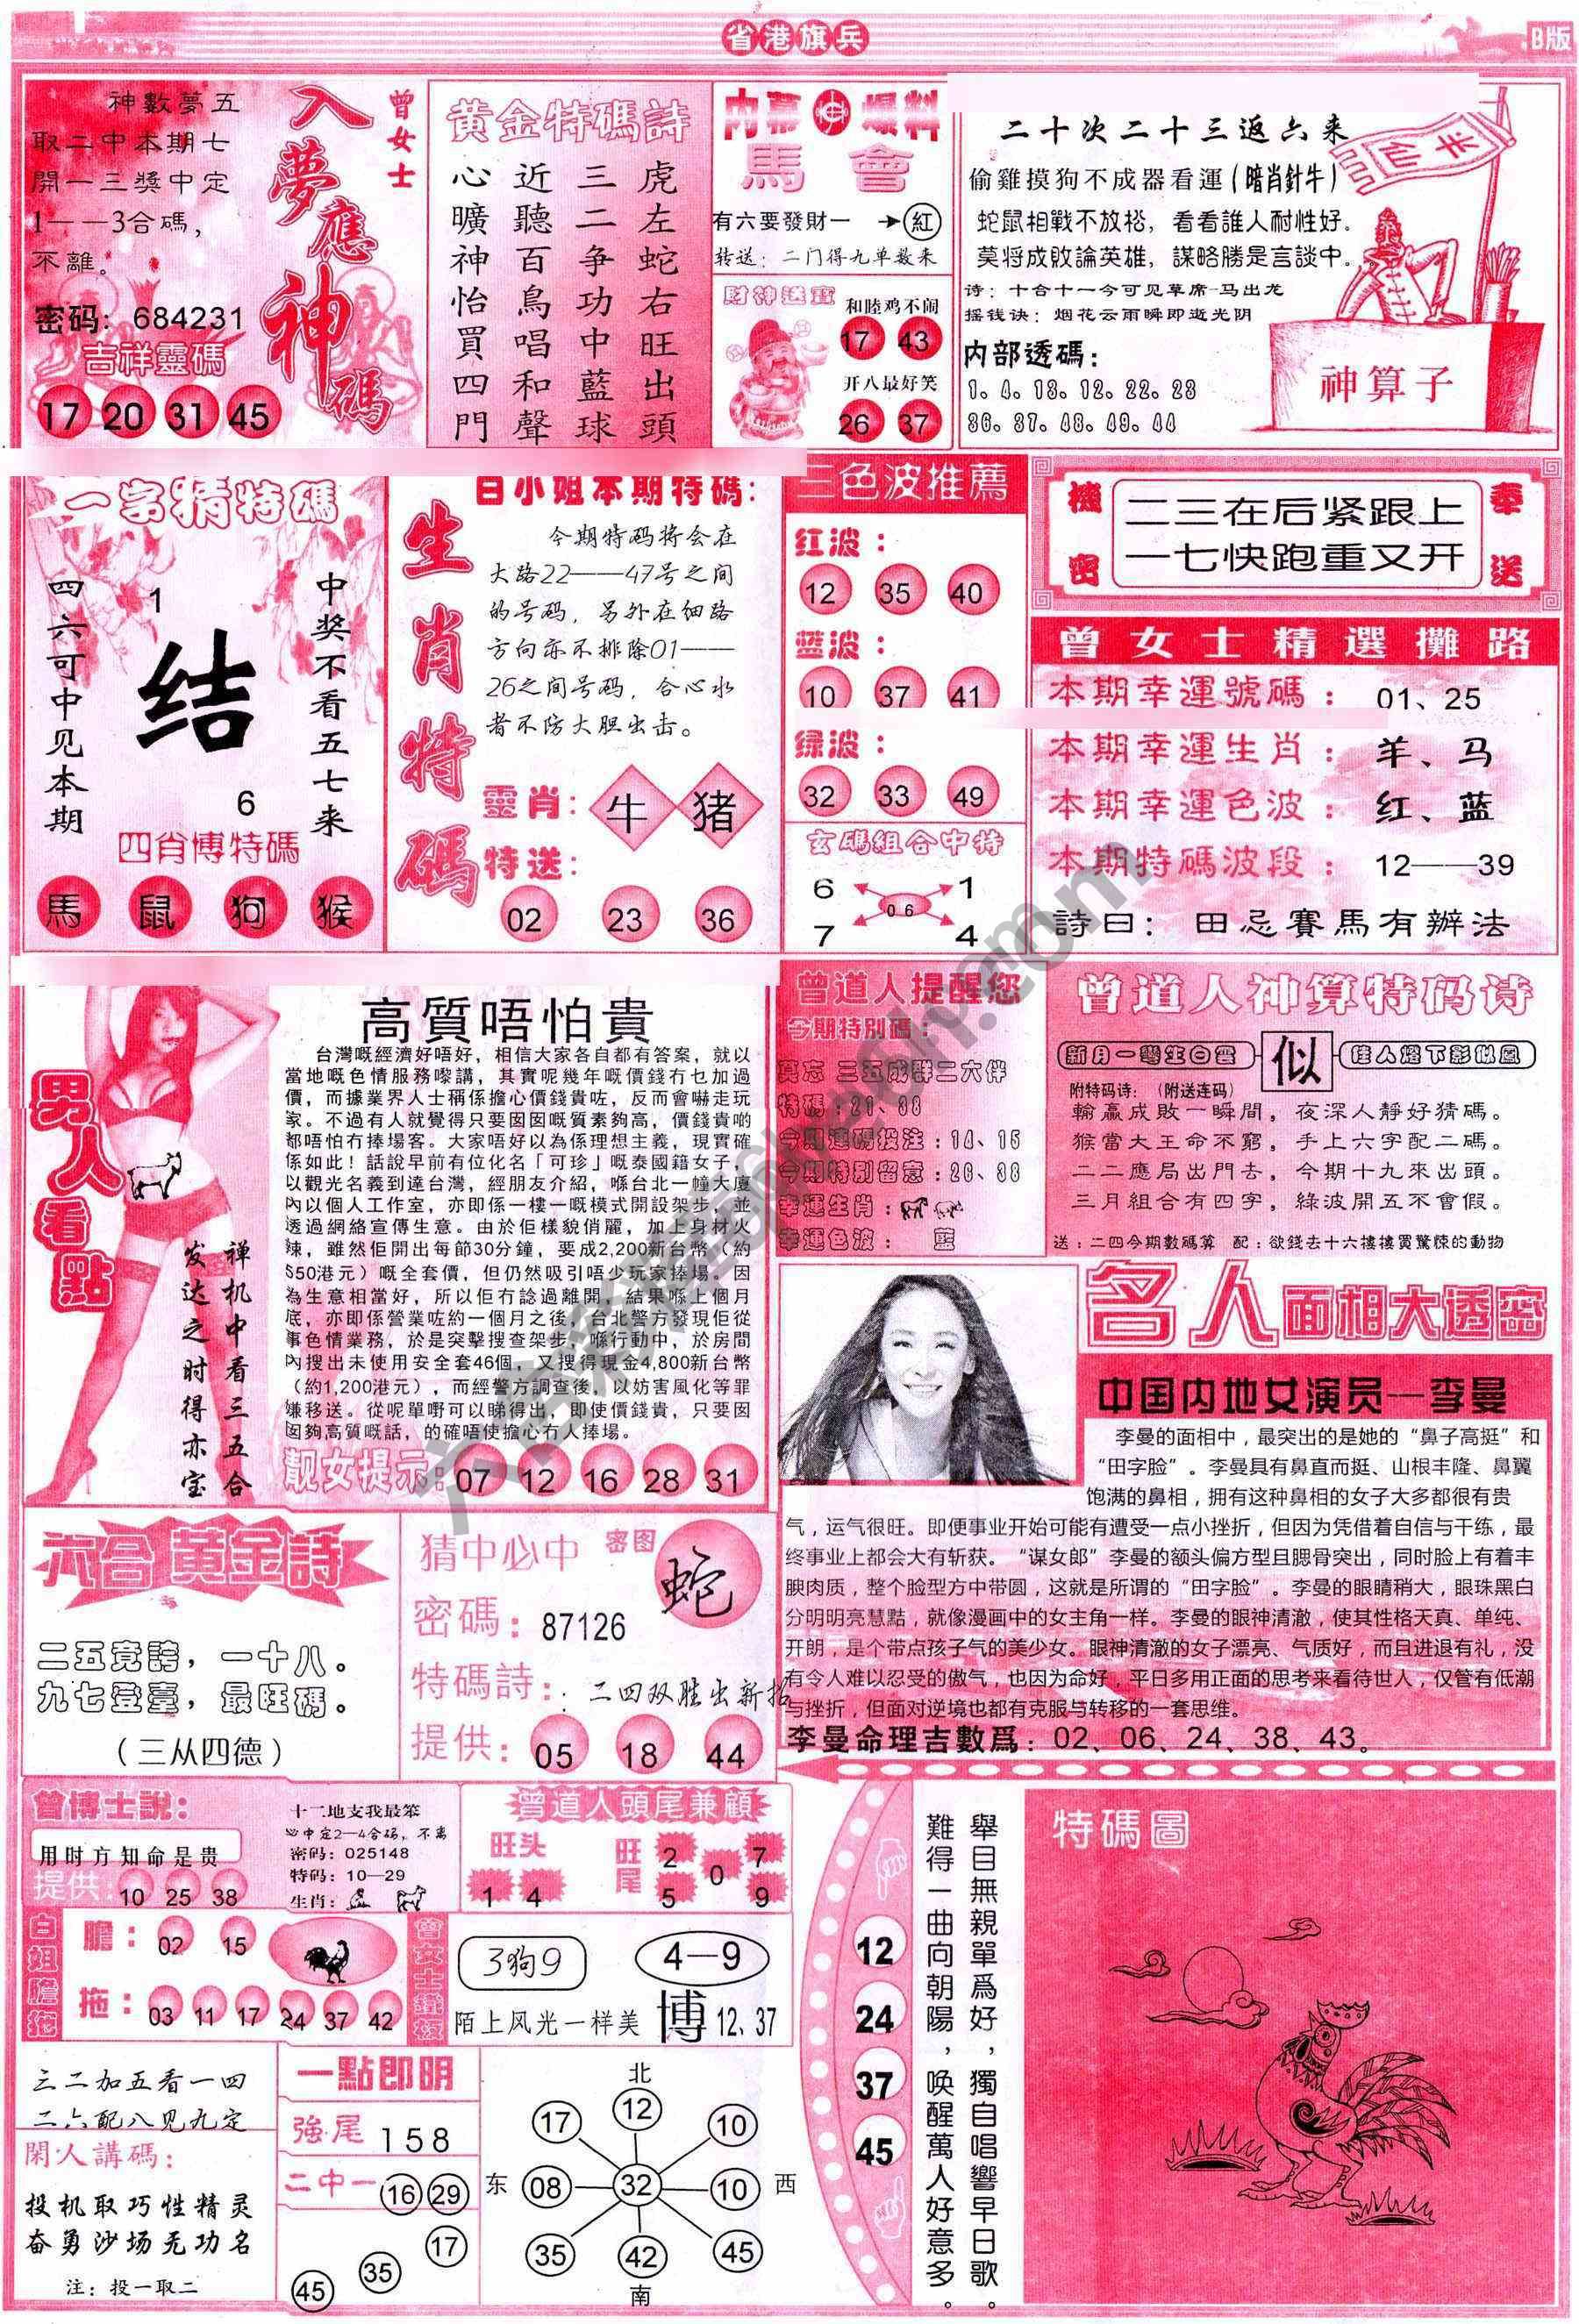 省港旗兵
B版
神數夢五
取二中本期七
開一三獎中定
1——3合碼，
不離。
密码：684231
吉祥靈碼
17 20 31 45
曾女士
入夢應神碼
黄金特碼詩
虎左蛇右旺出頭
三二争功中藍球
近聽百鳥唱和聲
心曠神怡買四門
内幕爆料
馬會
有六要發財一→紅
转送：二门得九单数来
財神送寶
和睦鸡不闹
17 43
开八最好笑
26 37
二十次二十三返六来
偷雞摸狗不成器看運(暗肖針牛)
蛇鼠相戰不放松，看看誰人耐性好。
莫将成敗論英雄，謀略勝是言談中。
诗：十合十一今可见草席一马出龙
摇钱诀：烟花云雨瞬即逝光阴
内部透碼：
1。4。13。12。22。23
36。37。48。49。44
半仙
神算子
一字猜特碼
四六可中见本期
1
结
6
中奖不看五七来
四肖博特碼
馬 鼠 狗 猴
生肖特碼
白小姐本期特碼：
今期特码将会在
大路22——47号之间
的号码，另外在细路
方向亦不排除01——
26之间号码，合心水
者不防大胆出击。
靈肖：牛 猪
特送：
02 23 36
三色波推薦
红波：
12 35 40
蓝波：
10 37 41
绿波：
32 33 49
玄碼組合中特
6 1
06
7 4
機密
二三在后紧跟上
一七快跑重又开
奉送
曾女士精選攤路
本期幸運號碼：01、25
本期幸運生肖：羊、马
本期幸運色波：红、蓝
本期特碼波段：12——39
詩曰：田忌賽馬有辦法
男人看點
禅机中看三五合
发达之时得亦宝
高質唔怕貴
台灣嘅經濟好唔好，相信大家各自都有答案，就以
當地嘅色情服務嚟講，其實呢幾年嘅價錢冇乜加過
價，而據業界人士稱係擔心價錢貴咗，反而會嚇走玩
家。不過有人就覺得只要囡囡嘅質素夠高，價錢貴啲
都唔怕冇捧場客。大家唔好以為係理想主義，現實確
係如此！話說早前有位化名「可珍」嘅泰國籍女子，
以觀光名義到達台灣，經朋友介紹，喺台北一幢大廈
內以個人工作室，亦即係一樓一嘅模式開設架步，並
透過網絡宣傳生意。由於佢樣貌俏麗，加上身材火
辣，雖然佢開出每節30分鐘，要成2,200新台幣（約
550港元）嘅全套價，但仍然吸引唔少玩家捧場。因
為生意相當好，所以佢冇諗過離開，結果喺上個月
底，亦即係營業咗約一個月之後，台北警方發現佢從
事色情業務，於是突擊搜查架步，喺行動中，於房間
內搜出未使用安全套46個，又搜得現金4,800新台幣
（約1,200港元），而經警方調查後，以妨害風化等罪
嫌移送。從呢單嘢可以睇得出，即使價錢貴，只要囡
囡夠高質嘅話，的確唔使擔心冇人捧場。
靓女提示：07 12 16 28 31
曾道人提醒您
今期特別碼：
莫忘 三五成群二六伴
特碼：21、38
今期連碼投注：14、15
今期特别留意：26、38
幸運生肖：
幸運色波： 蓝
曾道人神算特码诗
新月一彎生白雲
似
佳人燈下影似鳳
附特码诗：(附送连码)
輸赢成敗一瞬間，夜深人靜好猜碼。
猴當大王命不窮，手上六字配二碼。
二二應局出門去，今期十九來出頭。
三月組合有四字，綠波開五不會假。
送：二四今期數碼算 配：欲錢去十六樓樓買驚悚的動物
名人面相大透密
中国内地女演员一李曼
李曼的面相中，最突出的是她的“鼻子高挺”和
“田字脸”。李曼具有鼻直而挺、山根丰隆、鼻翼
饱满的鼻相，拥有这种鼻相的女子大多都很有贵
气，运气很旺。即便事业开始可能有遭受一点小挫折，但因为凭借着自信与干练，最
终事业上都会大有斩获。“谋女郎”李曼的额头偏方型且腮骨突出，同时脸上有着丰
腴肉质，整个脸型方中带圆，这就是所谓的“田字脸”。李曼的眼睛稍大，眼珠黑白
分明明亮慧黠，就像漫画中的女主角一样。李曼的眼神清澈，使其性格天真、单纯、
开朗，是个带点孩子气的美少女。眼神清澈的女子漂亮、气质好，而且进退有礼，没
有令人难以忍受的傲气，也因为命好，平日多用正面的思考来看待世人，仅管有低潮
与挫折，但面对逆境也都有克服与转移的一套思维。
李曼命理吉數爲：02、06、24、38、43。
六合黄金詩
二五竞誇，一十八。
九七登臺，最旺碼。
（三从四德）
猜中必中 密图
蛇
密碼：87126
特碼詩：二四双胜出新招
提供：05 18 44
曾博士說：
用时方知命是贵
提供：10 25 38
十二地支我最笨
心中定2—4合码，不离
密码：025148
特码：10—29
生肖：
曾道人頭尾兼顧
旺头
1 4
旺尾
2 7
0
5 9
白姐膽拖
膽：02 15
拖：03 11 17 24 37 42
曾女士鐵板
3狗9
4—9
陌上风光一样美 博 12、37
三二加五看一四
二六配八见九定
閑人講碼：
投机取巧性精灵
奋勇沙场无功名
注：投一取二
一點即明
強尾 158
二中一 16 29
17
35
45
北
17 12 10
东 08 32 10 西
35 42 45
南
12
24
37
45
舉目無親單爲好，獨自唱響早日歌。
難得一曲向朝陽，唤醒萬人好意多。
特碼圖